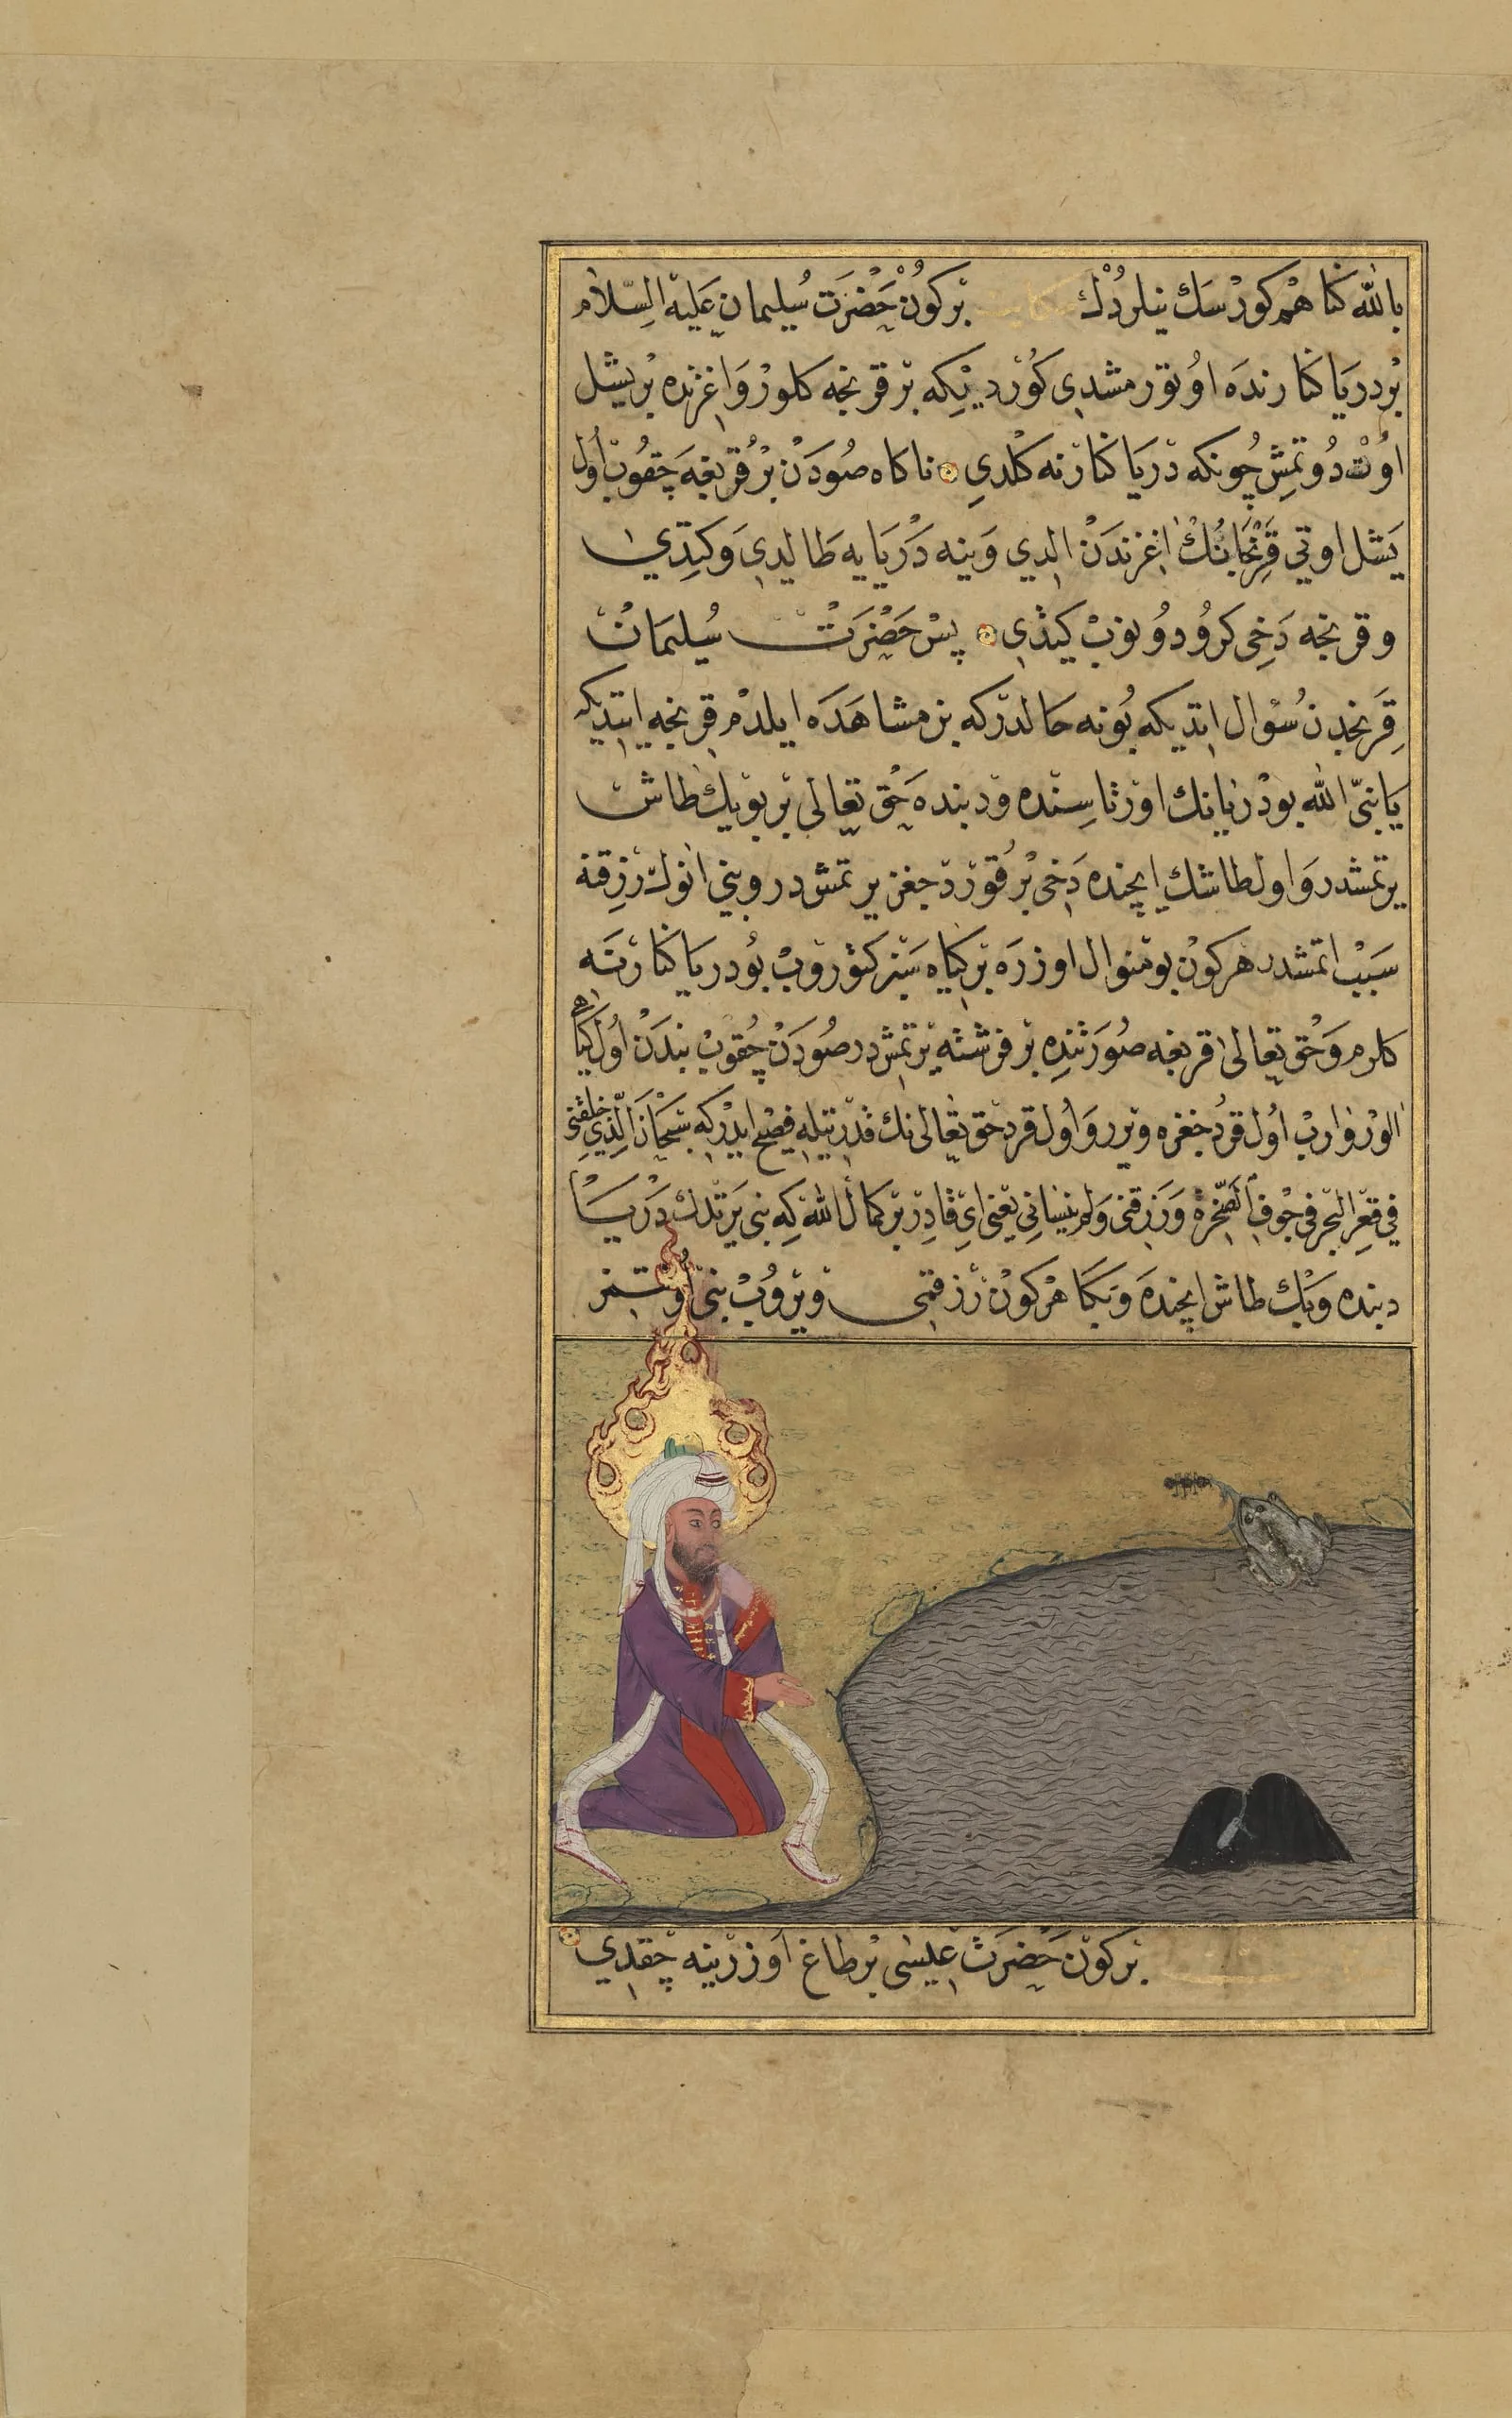 بالله كناهم كورسك نيلردك حكايت بركون حضرت سليمان عليه السلام
بر دريا كنارنده اوتورمشدى كورديكه بر قرنجه كلور و اغزنده بر يشل
اوت دوتمش چونكه دريا كنارنه كلدى ناكاه صودن بر قربغه چقوب اول
يشل اوتى قرنجانك اغزندن الدى و ينه دريايه طالدى و كتدى
و قرنجه دخى كرو دونوب كيتدى پس حضرت سليمان
قرنجه‌دن سؤال ايتديكه بو نه حالدر كه بن مشاهده ايلدم قرنجه ايتديكه
يا نبى الله بو دريانك اورتاسنده و دبنده حق تعالى بر بويك طاش
يرتمشدر و اول طاشك ايچنده دخى بر قوردجغز يرتمشدر و بنى انوك رزقنه
سبب اتمشدر هركون بو منوال اوزره بر كياه سبز كتوروب بو دريا كنارنه
كلرم و حق تعالى قربغه صورتنده بر فرشته يرتمشدر صودن چقوب بندن اول كياهى
الور وارب اول قوردجغزه ويرر و اول قرد حق تعالى‌نك قدرتيله فصيح ايدركه سبحان الذى خلقنى
فى قعر البحر فى جوف الصخرة و رزقنى و لم ينسانى يعنى اى قادر بر كمال الله كه بنى يرتدك دريا
دبنده و بك طاش ايچنده و بكا هركون رزقمى ويروب بنى اونتمز
بركون حضرت عيسى بر طاغ اوزرينه چقدى